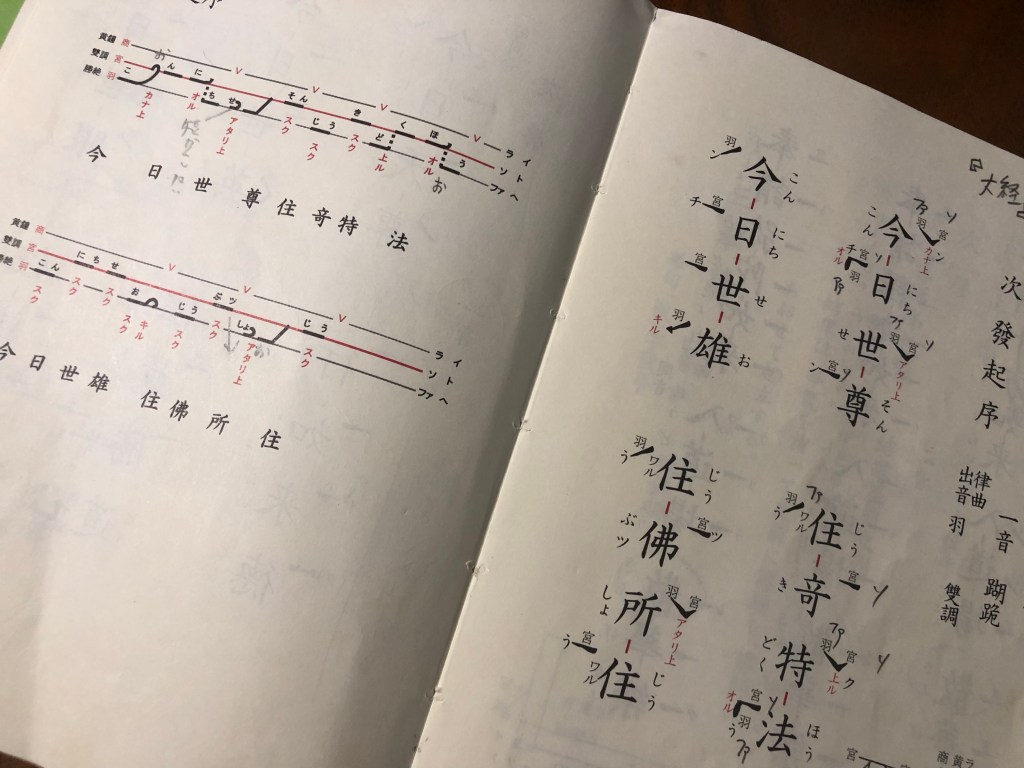 大経
次發起序
律曲
出音羽
一音
蹦跪
雙調
今日世尊
こん
にち
せ
そん
住竒特法
じう
き
どく
ほう
今日世雄
こん
にち
せ
お
住佛所住
じう
ぶツ
しょ
じう
黄鐘 商
雙調 宮
勝絶 羽
こ
おん
に
ち
せ
そん
じう
き
ど
く
ほ
う
カナ上
オル
アタリ上
スク
スク
スク
上ル
オル
ライ
ソト
ファヘ
今日世尊住竒特法
黄鐘 商
雙調 宮
勝絶 羽
こん
にち
せ
お
じう
ぶツ
しょ
じう
スク
スク
スク
スク
キル
スク
スク
アタリ上
スク
ライ
ソト
ファヘ
今日世雄 住佛所住